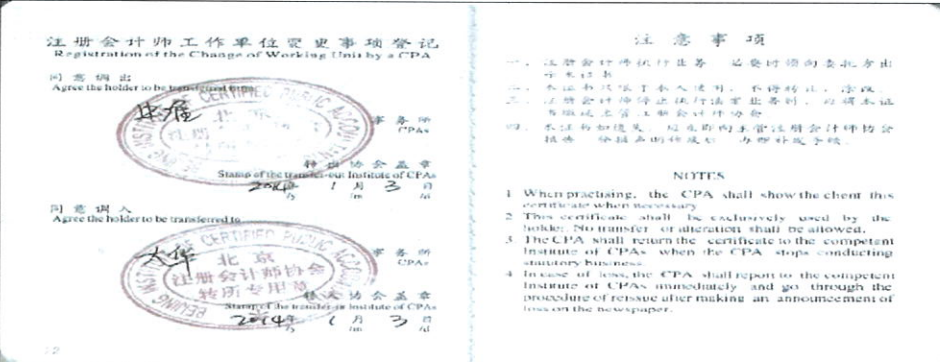 注册会计师工作单位变更事项登记
Registration of the Change of Working Unit by a CPA
同意调出
Agree the holder to be transferred from
事务所
CPAs
转出协会盖章
Stamp of the transfer-out Institute of CPAs
2014年 1月 3日
/y /m /d
同意调入
Agree the holder to be transferred to
大华
事务所
CPAs
BEIJING INSTITUTE OF CERTIFIED PUBLIC ACCOUNTANTS
北京
注册会计师协会
转所专用章
转入协会盖章
Stamp of the transfer-in Institute of CPAs
2014年 1月 3日
/y /m /d
注意事项
一、注册会计师执行业务，必要时须向委托方出
示本证书。
二、本证书只限于本人使用，不得转让、涂改。
三、注册会计师停止执行法定业务时，应将本证
书缴还主管注册会计师协会。
四、本证书如遗失，应立即向主管注册会计师协会
报告，登报声明作废后，办理补发手续。
NOTES
1 When practising, the CPA shall show the client this
certificate when necessary.
2 This certificate shall be exclusively used by the
holder. No transfer or alteration shall be allowed.
3 The CPA shall return the certificate to the competent
Institute of CPAs when the CPA stops conducting
statutory business.
4 In case of loss, the CPA shall report to the competent
Institute of CPAs immediately and go through the
procedure of reissue after making an announcement of
loss on the newspaper.
12